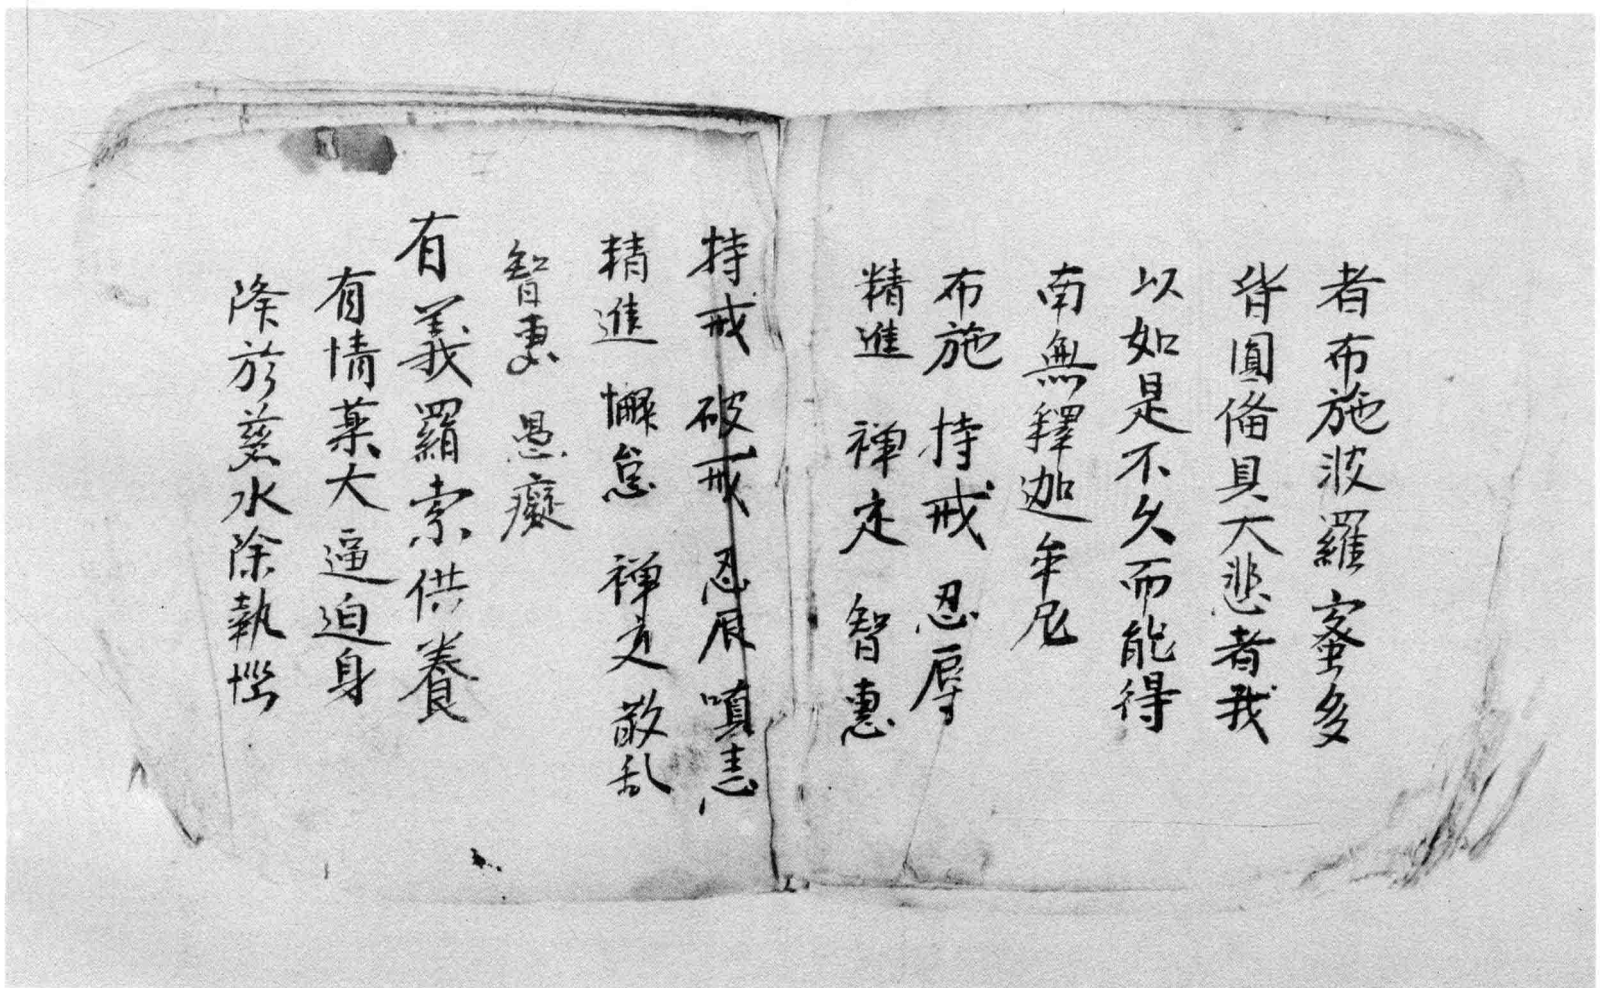 者布施波羅蜜多
皆圓俻具大悲者我
以如是不久而能得
南無釋迦牟尼
布施 持戒 忍辱
精進 禅定 智惠
持戒 破戒 忍辰 嗔恚
精進 懈怠 禅定 散乱
智惠 愚癡
有義羂索供養
有情藥大逼迫身
降於慈水除執惱